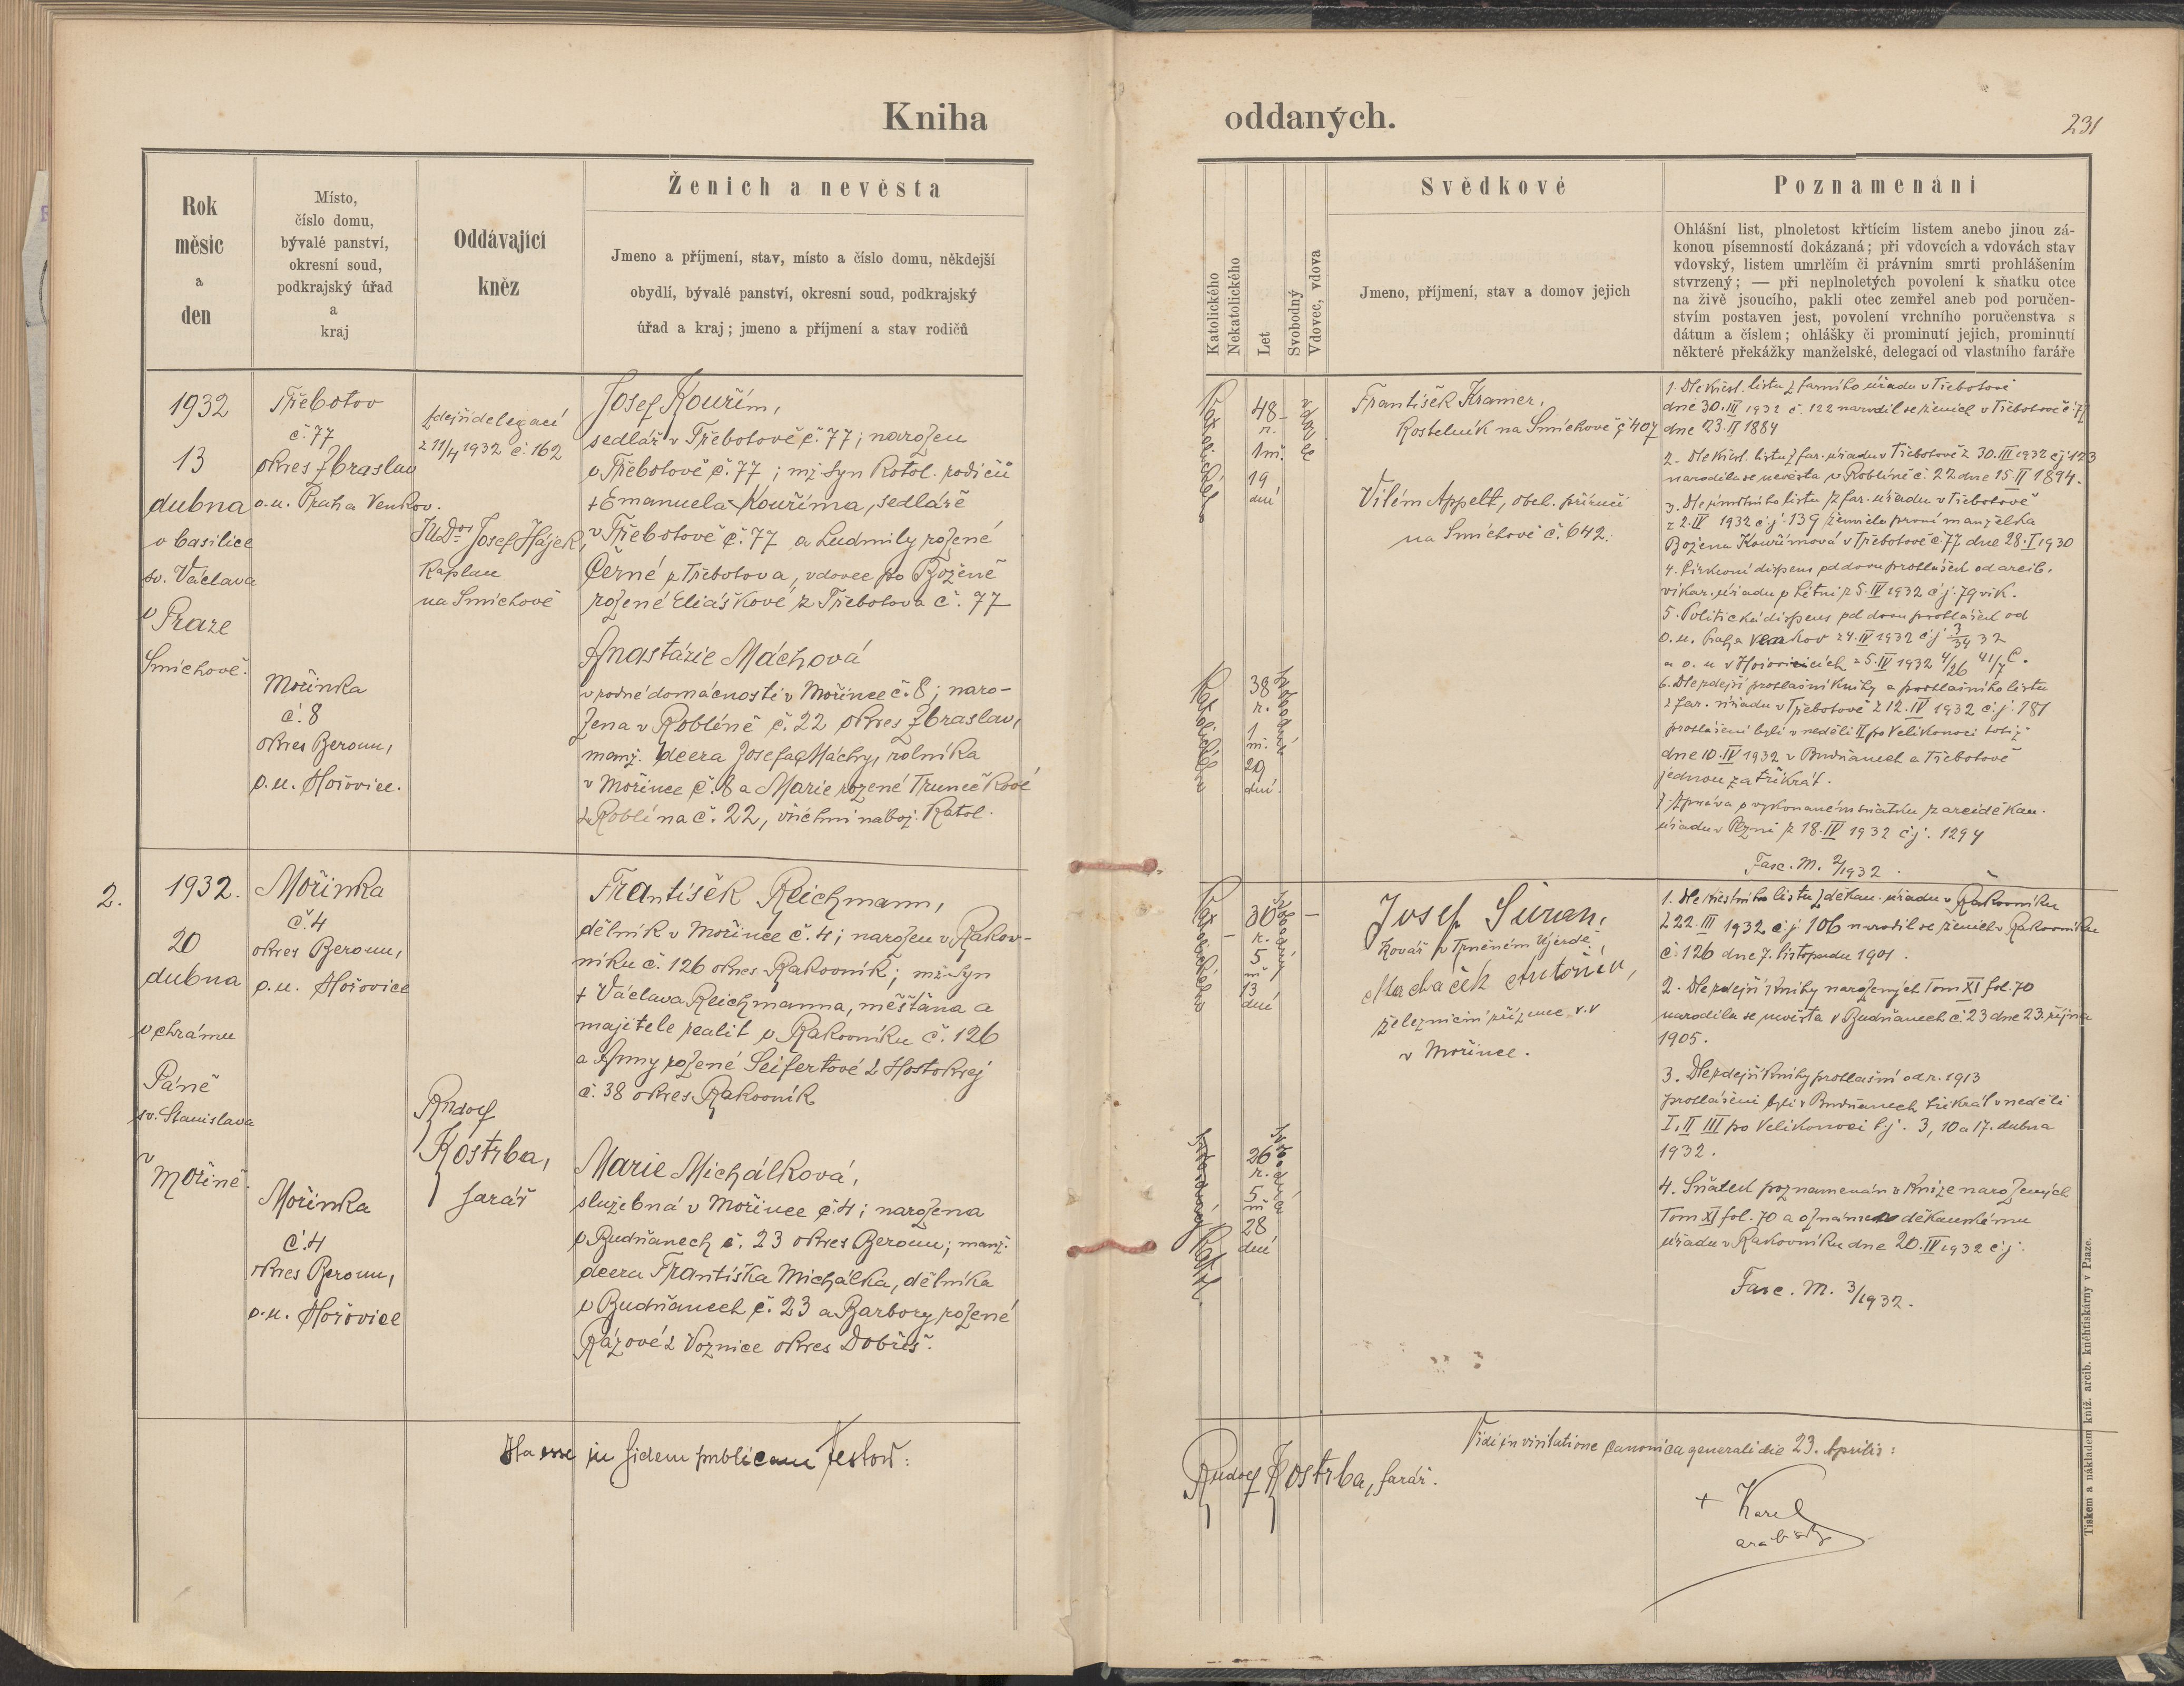 Kniha
oddaných.
231
Rok
měsíc
a
den
Místo,
číslo domu,
bývalé panství,
okresní soud,
podkrajský úřad
a
kraj
Oddávající
kněz
Ženich a nevěsta
Jmeno a příjmení, stav, místo a číslo domu, někdejší
obydlí, bývalé panství, okresní soud, podkrajský
úřad a kraj; jmeno a příjmení a stav rodičů
Katolického
Nekatolického
Let
Svobodný
Vdovec, vdova
Svědkové
Jmeno, příjmení, stav a domov jejich
Poznamenání
Ohlášní list, plnoletost křtícím listem anebo jinou zá-
konou písemností dokázaná; při vdovcích a vdovách stav
vdovský, listem umrlčím či právním smrti prohlášením
stvrzený; — při neplnoletých povolení k sňatku otce
na živě jsoucího, pakli otec zemřel aneb pod poručen-
stvím postaven jest, povolení vrchního poručenstva s
dátum a číslem; ohlášky či prominutí jejich, prominutí
některé překážky manželské, delegací od vlastního faráře
1932
13
dubna
v basilice
sv. Václava
v Praze
Smíchově.
Třebotov
č. 77
okres Zbraslav
o.u. Praha Venkov.
Mořinka
č. 8
okres Beroun,
o.u. Hořovice.
zdejší delegací
z 11/4 1932 č. 162
JUDr. Josef Hájek,
kaplan
na Smíchově
Josef Kouřim,
sedlář v Třebotově č. 77; narozen
v Třebotově č. 77; mž. syn katol. rodičů
+ Emanuela Kouříma, sedláře
v Třebotově č. 77 a Ludmily rozené
Černé z Třebotova, vdovec po Boženě
rozené Eliáškové z Třebotova č. 77
Anastázie Máchová
v rodné domácnosti v Mořince č. 8; naro-
zena v Roblíně č. 22 okres Zbraslav,
manž. dcera Josefa Máchy, rolníka
v Mořince č. 8 a Marie rozené Trunečkové
z Roblína č. 22, všichni nábož. katol.
48
r.
1 m.
19
dní
38
r.
1
m.
29
dní.
František Kramer,
kostelník na Smíchově č 407
Vilém Appelt, obch. příručí
na Smíchově č. 642.
1. Dle křest. listu z farního úřadu v Třebotově
dne 30. III 1932 č. 122 narodil se ženich v Třebotově č. 77
dne 23. II 1884
2. Dle křest. listu z far. úřadu v Třebotově z 30. III 1932 čj 123
narodila se nevěsta v Roblíně č. 22 dne 15. II 1894.
3. Dle úmrtního listu z far. úřadu v Třebotově
z 2. IV 1932 č.j. 139 zemřela první manželka
Božena Kouřimová v Třebotově č. 77 dne 28. I 1930
4. Církevní dispens od dvou prohlášek od arcib.
vikar. úřadu z 5. IV 1932 č.j. 79 vik.
5. Politická dispens od dvou prohlášek od
o.u. Praha Venkov z 4. IV 1932 č.j. 3/34 32
a o. u v Hořovicích z 5. IV 1932 4/26 41/7 C.
6. Dle zdejší prohlašní knihy a prohlašního listu
z far. úřadu v Třebotově z 12. IV 1932 č.j. 181
prohlášeni byli v neděli II po Velikonoci totiž
dne 10. IV 1932 v Budňanech a Třebotově
jednou za třikrát.
7. Zpráva o vykonaném sňatku z arciděkan.
úřadu v Plzni z 18. IV 1932 č.j. 1294
Fasc. M. 2/1932.
2.
1932.
20
dubna
v chrámu
Páně
sv. Stanislava
v Mořině.
Mořinka
č. 4
okres Beroun,
o.u. Hořovice
Mořinka
č. 4
okres Beroun,
o.u. Hořovice
Rudolf
Kostrba,
farář
František Reichmann,
dělník v Mořince č. 4; narozen v Rakov-
níku č. 126 okres Rakovník; mž. syn
+ Václava Reichmanna, měšťana a
majitele realit v Rakovníku č. 126
a Anny rozené Seifertové z Hostokrej
č. 38 okres Rakovník
Marie Michálková,
služebná v Mořince č. 4; narozena
v Budňanech č. 23 okres Beroun; manž.
dcera Františka Michálka, dělníka
v Budňanech č. 23 a Barbory rozené
Rázové z Voznice okres Dobříš.
30
r.
5
m.
13
dní
26
r.
5
m
28
dní
Josef Šuran,
kovář v Trněném Újezdě,
Macháček Antonín,
železniční zřízenec v.v
v Mořince.
1. Dle křestního listu z děkan. úřadu v Rakovníku
z 22. III 1932 č.j. 106 narodil se ženich v Rakovníku
č. 126 dne 7. listopadu 1901.
2. Dle zdejší knihy narozených Tom XI fol. 70
narodila se nevěsta v Budňanech č. 23 dne 23. října
1905.
3. Dle zdejší knihy prohlašní od r. 1913
prohlášeni byli v Budňanech třikrát v neděli
I, II III po Velikonoci t.j. 3, 10 a 17. dubna
1932.
4. Sňatek poznamenán v knize narozených
Tom XI fol. 70 a oznámen děkanskému
úřadu v Rakovníku dne 20. IV 1932 č.j.
Fasc. M. 3/1932.
Ita esse in fidem publicam testor:
Rudolf Kostrba, farář.
Vidi in visitatione canonica generali die 23. Aprilis:
+ Karel
Tiskem a nákladem kníž. arcib. knihtiskárny v Praze.